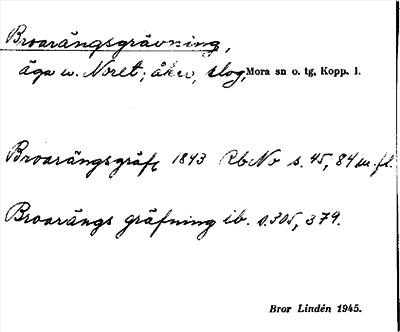 Broarängsgrävning,
äga w. Noret; åker, slog, Mora sn o. tg, Kopp. l.
Broarängsgräft 1843 RbNo s. 45, 84 m. fl.
Broarängs gräfning ib. s. 305, 379.
Bror Lindén 1945.